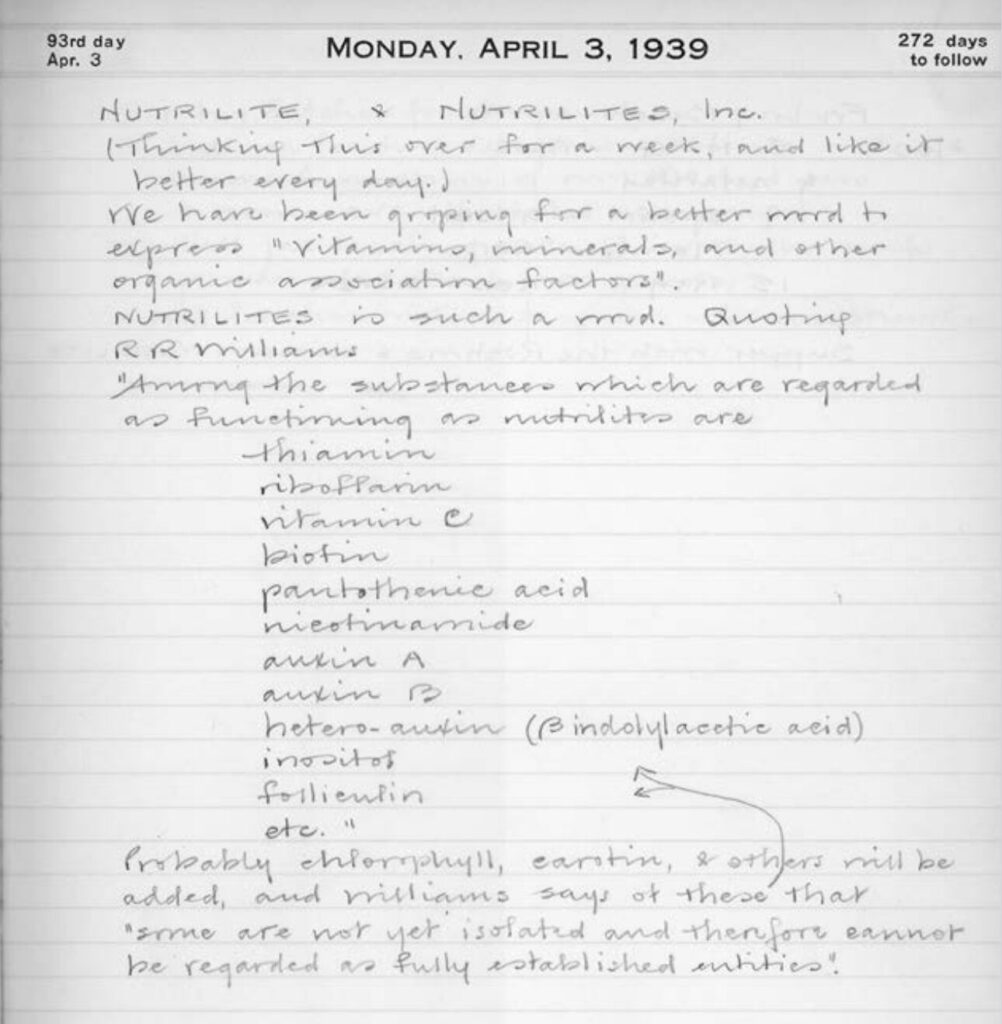 93rd day
Apr. 3
MONDAY, APRIL 3, 1939
272 days
to follow
NUTRILITE, & NUTRILITES, Inc.
(Thinking this over for a week, and like it
better every day.)
We have been groping for a better word to
express "vitamins, minerals, and other
organic association factors".
NUTRILITES is such a word. Quoting
R R Williams
"Among the substances which are regarded
as functioning as nutrilites are
thiamin
riboflavin
vitamin C
biotin
pantothenic acid
nicotinamide
auxin A
auxin B
hetero-auxin (β indolylacetic acid)
inositol
folliculin
etc."
Probably chlorophyll, carotin, & others will be
added, and Williams says of these that
"some are not yet isolated and therefore cannot
be regarded as fully established entities".